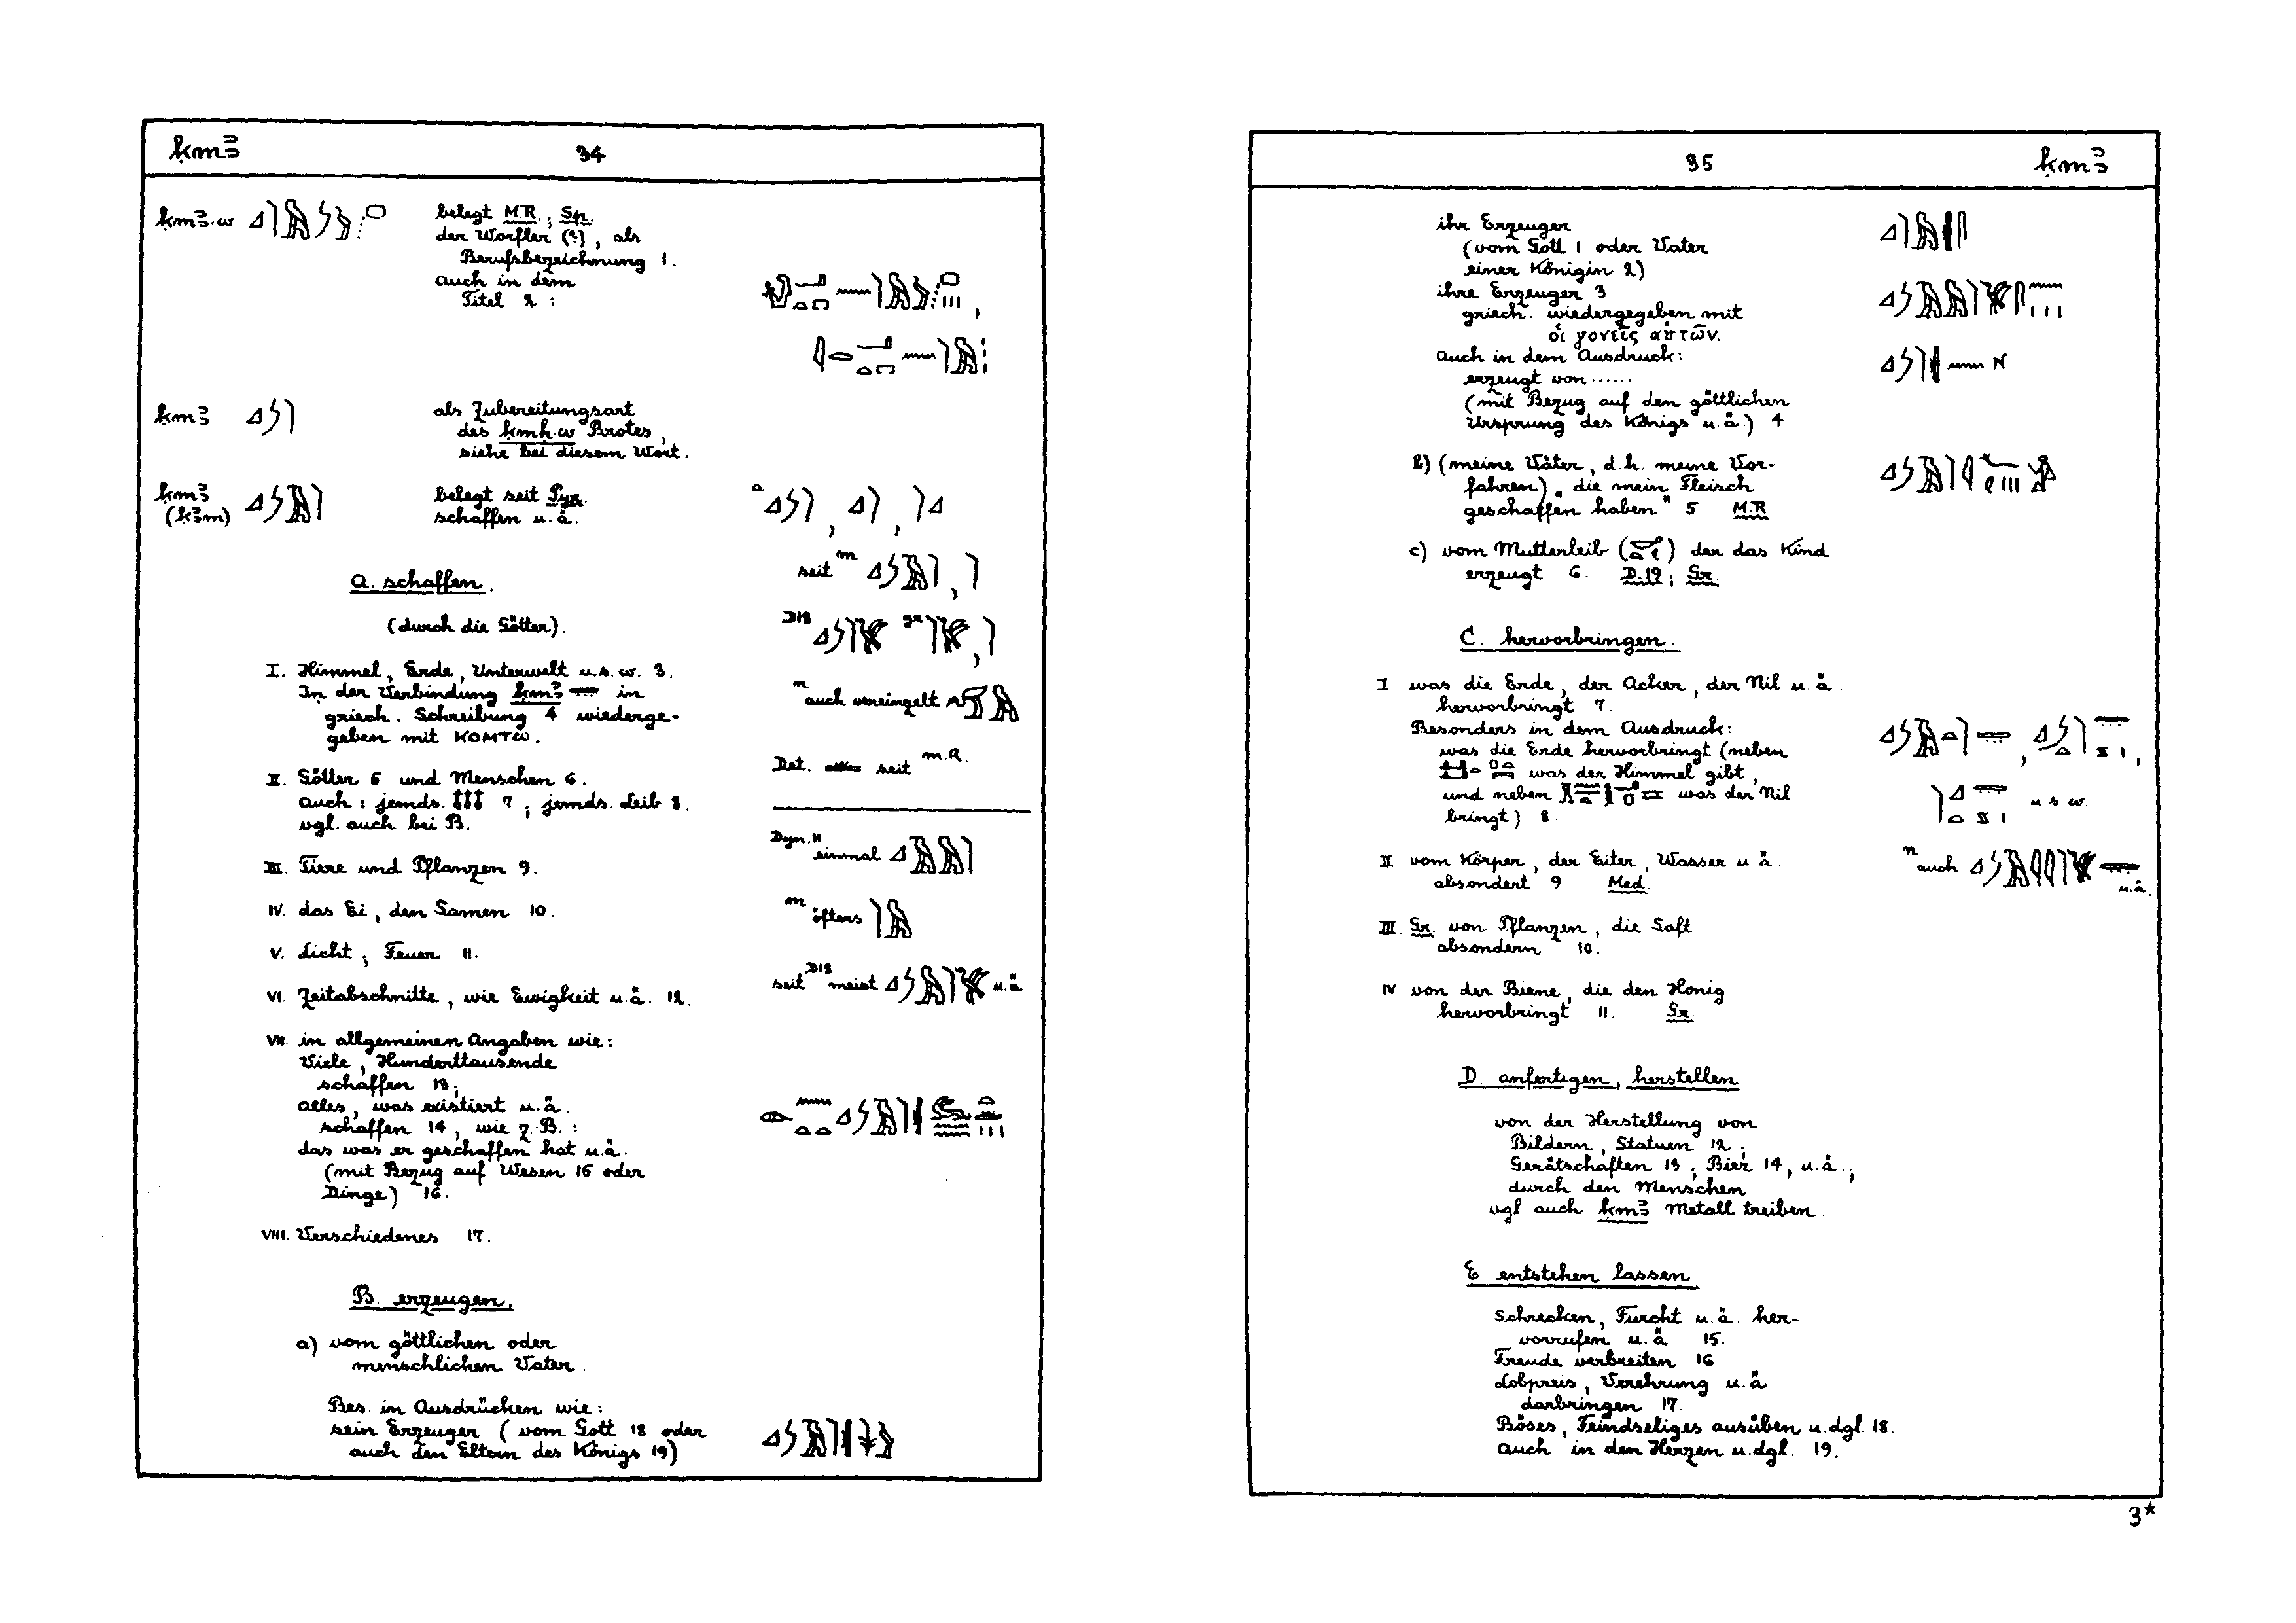 ḳmꜣ 34
ḳmꜣ·w belegt M.R.; Sp.
der Worfler (?), als
Berufsbezeichnung 1.
auch in dem
Titel 2 :
ḳmꜣ als Zubereitungsart
des ḳmḥ·w Brotes,
siehe bei diesem Wort.
ḳmꜣ belegt seit Pyr. a
(ḳꜣm) schaffen u.ä.
seit m
A. schaffen.
(durch die Götter). D18 gr
I. Himmel, Erde, Unterwelt u.s.w. 3.
In der Verbindung ḳmꜣ in
griech. Schreibung 4 wiederge-
geben mit κομτω.
n auch vereinzelt
II. Götter 5 und Menschen 6.
auch: jemds. 7; jemds. Leib 8.
vgl. auch bei B.
Det. seit m.R.
III. Tiere und Pflanzen 9.
Dyn. 11 einmal
IV. das Ei, den Samen 10.
m öfters
V. Licht; Feuer 11.
VI. Zeitabschnitte, wie Ewigkeit u.ä. 12.
seit D18 meist u.ä
VII. in allgemeinen Angaben wie:
Viele, Hunderttausende
schaffen 13;
alles, was existiert u.ä.
schaffen 14, wie z.B. :
das was er geschaffen hat u.ä.
(mit Bezug auf Wesen 15 oder
Dinge) 16.
VIII. Verschiedenes 17.
B. erzeugen.
a) vom göttlichen oder
menschlichen Vater.
Bes. in Ausdrücken wie:
sein Erzeuger (vom Gott 18 oder
auch den Eltern des Königs 19)
35 ḳmꜣ
ihr Erzeuger
(vom Gott 1 oder Vater
einer Königin 2)
ihre Erzeuger 3
griech. wiedergegeben mit
οἱ γονεῖς αὐτῶν.
auch in dem Ausdruck:
erzeugt von ...... N
(mit Bezug auf den göttlichen
Ursprung des Königs u.ä.) 4
b) (meine Väter, d.h. meine Vor-
fahren) „die mein Fleisch
geschaffen haben" 5 M.R.
c) vom Mutterleib ( ) der das Kind
erzeugt 6. D.19; Gr.
C. hervorbringen.
I was die Erde, der Acker, der Nil u.ä.
hervorbringt 7.
Besonders in dem Ausdruck:
was die Erde hervorbringt (neben
was der Himmel gibt,
und neben was der Nil
bringt) 8.
u s w.
II vom Körper, der Eiter, Wasser u ä.
absondert 9 Med.
n auch u.ä.
III Gr. von Pflanzen, die Saft
absondern 10.
IV von der Biene, die den Honig
hervorbringt 11. Gr.
D. anfertigen, herstellen
von der Herstellung von
Bildern, Statuen 12;
Gerätschaften 13; Bier 14, u.ä.;
durch den Menschen
vgl. auch ḳmꜣ Metall treiben
E. entstehen lassen.
Schrecken, Furcht u.ä. her-
vorrufen u.ä 15.
Freude verbreiten 16
Lobpreis, Verehrung u.ä.
darbringen 17.
Böses, Feindseliges ausüben u.dgl. 18.
auch in den Herzen u.dgl. 19.
3*